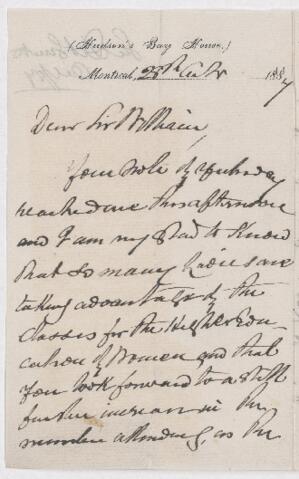 (Hudson's Bay House.)
Montreal, 28th Octr 1887
Dear Sir William,
Your note of yesterday
reached me this afternoon
and I am very glad to know
that so many Ladies are
taking advantage of the
Classes for the Higher Edu-
cation of Women and that
you look forward to a still
further increase in the
number attending, as the